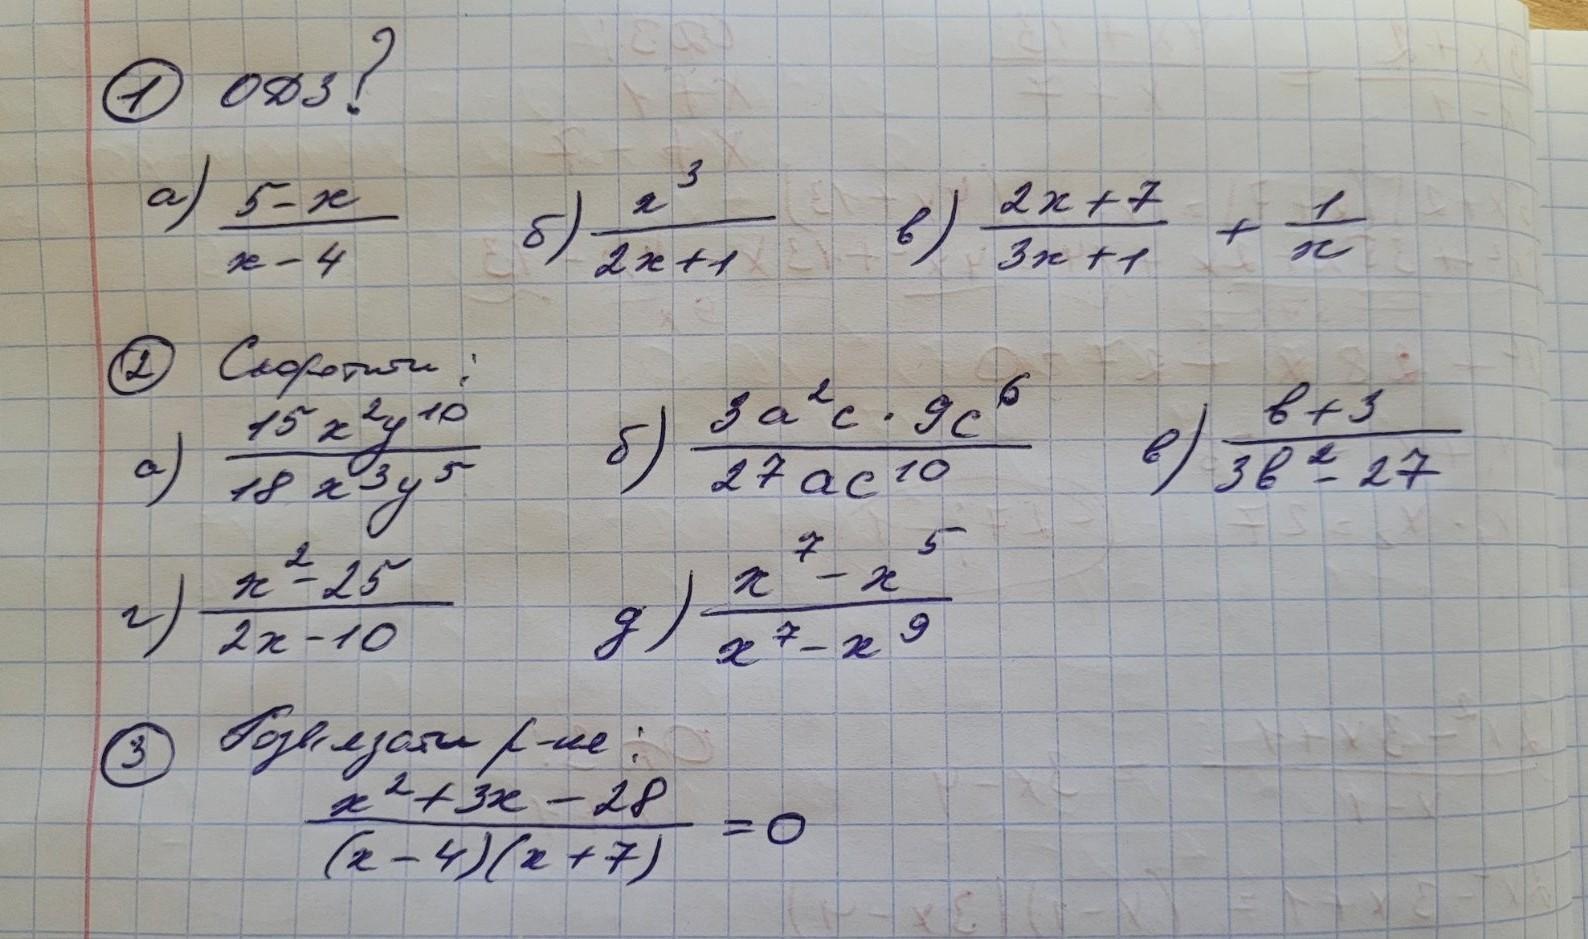 ① ОДЗ?
а) (5-x)/(x-4) б) x³/(2x+1) в) (2x+7)/(3x+1) + 1/x
② Скоротити:
а) 15x²y¹⁰/18x³y⁵ б) 3a²c·9c⁶/27ac¹⁰ в) (b+3)/(3b²-27)
г) (x²-25)/(2x-10) д) (x⁷-x⁵)/(x⁷-x⁹)
③ Розв'язати р-не:
(x²+3x-28)/((x-4)(x+7)) = 0